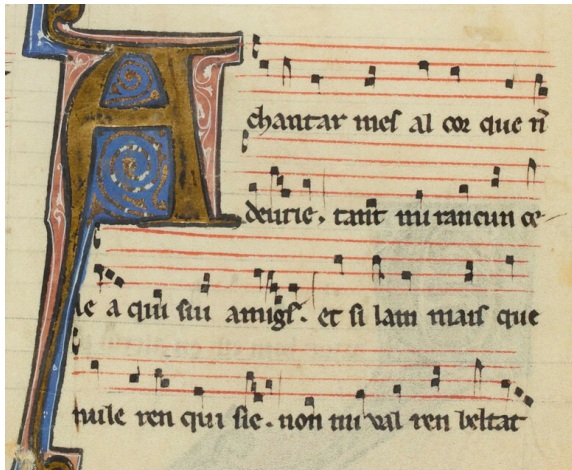 A chantar mes al cor que ñ
deurie. tant mi rancun ce
le a qui sui amigs. et si lam mais que
nule ren qui sie. non mi val ren beltat